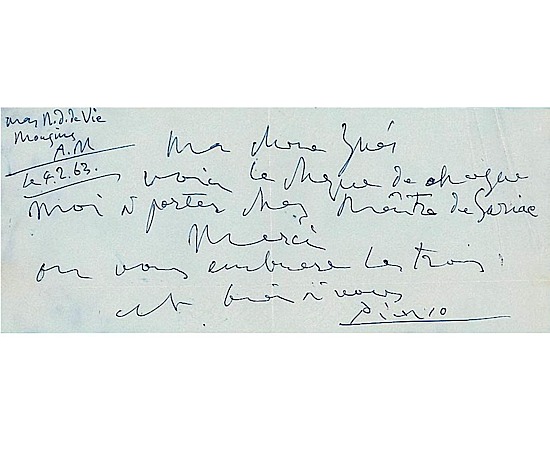 mas N.d.de Vie
Mougins
A.M
le 4.2.63.
Ma chère Inés
voici le cheque de chaque
mois à porter chez Maître de Sariac
Merci
on vous embrasse les trois
et bien à vous
Picasso